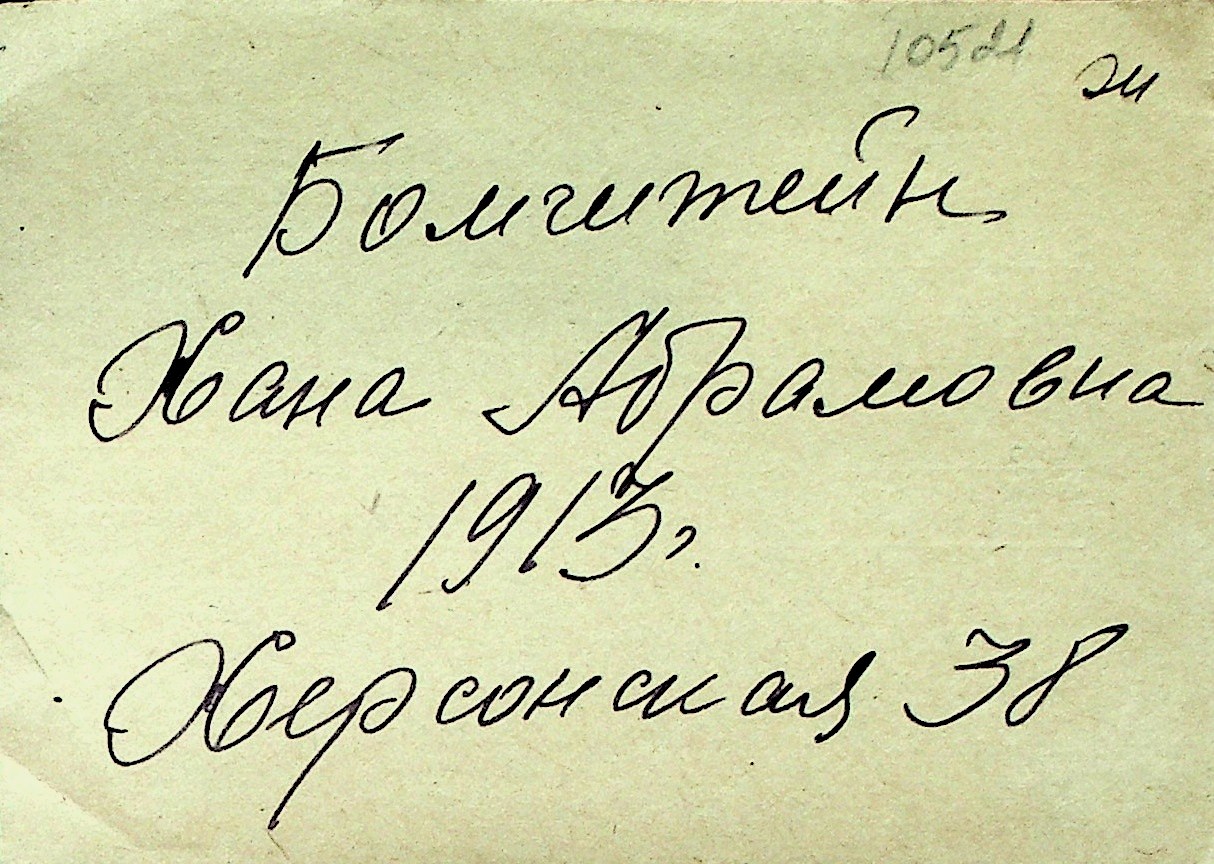 10521
Бомгштейн
Хана Абрамовна
1913 г.
Херсонская 38